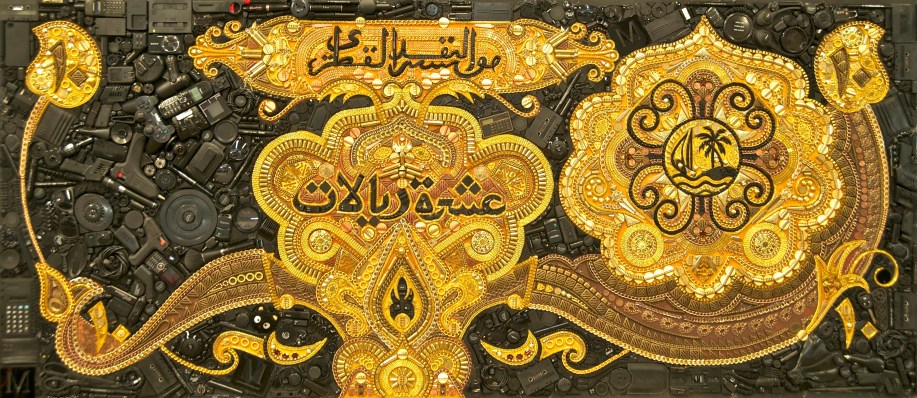 مؤسسة النقد القطري
١٠
١٠
عشرة ريالات